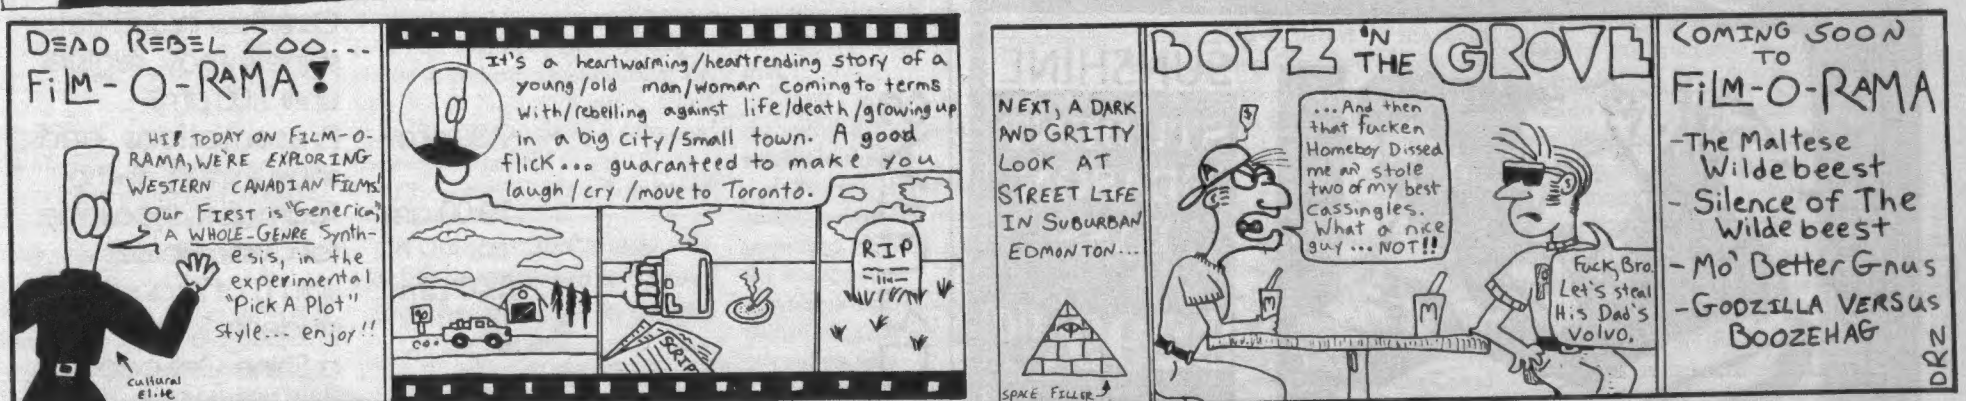 DEAD REBEL ZOO...
FILM-O-RAMA!
HI! TODAY ON FILM-O-
RAMA, WE'RE EXPLORING
WESTERN CANADIAN FILMS!
Our FIRST is "Generica",
A WHOLE-GENRE Synth-
esis, in the
experimental
"Pick A Plot"
Style... enjoy!!
cultural
Elite
It's a heartwarming/heartrending story of a
young/old man/woman coming to terms
with/rebelling against life/death/growing up
in a big city/small town. A good
flick... guaranteed to make you
laugh/cry/move to Toronto.
SCRIPT
RIP
NEXT, A DARK
AND GRITTY
LOOK AT
STREET LIFE
IN SUBURBAN
EDMONTON...
SPACE FILLER
BOYZ 'N THE GROVE
$
...And then
that fucken
Homeboy Dissed
me an' stole
two of my best
Cassingles.
What a nice
guy...NOT!!
M
M
Fuck, Bro.
Let's steal
His Dad's
Volvo.
COMING SOON
TO
FILM-O-RAMA
-The Maltese
Wildebeest
- Silence of The
Wildebeest
- Mo' Better Gnus
-GODZILLA VERSUS
BOOZEHAG
DRZ